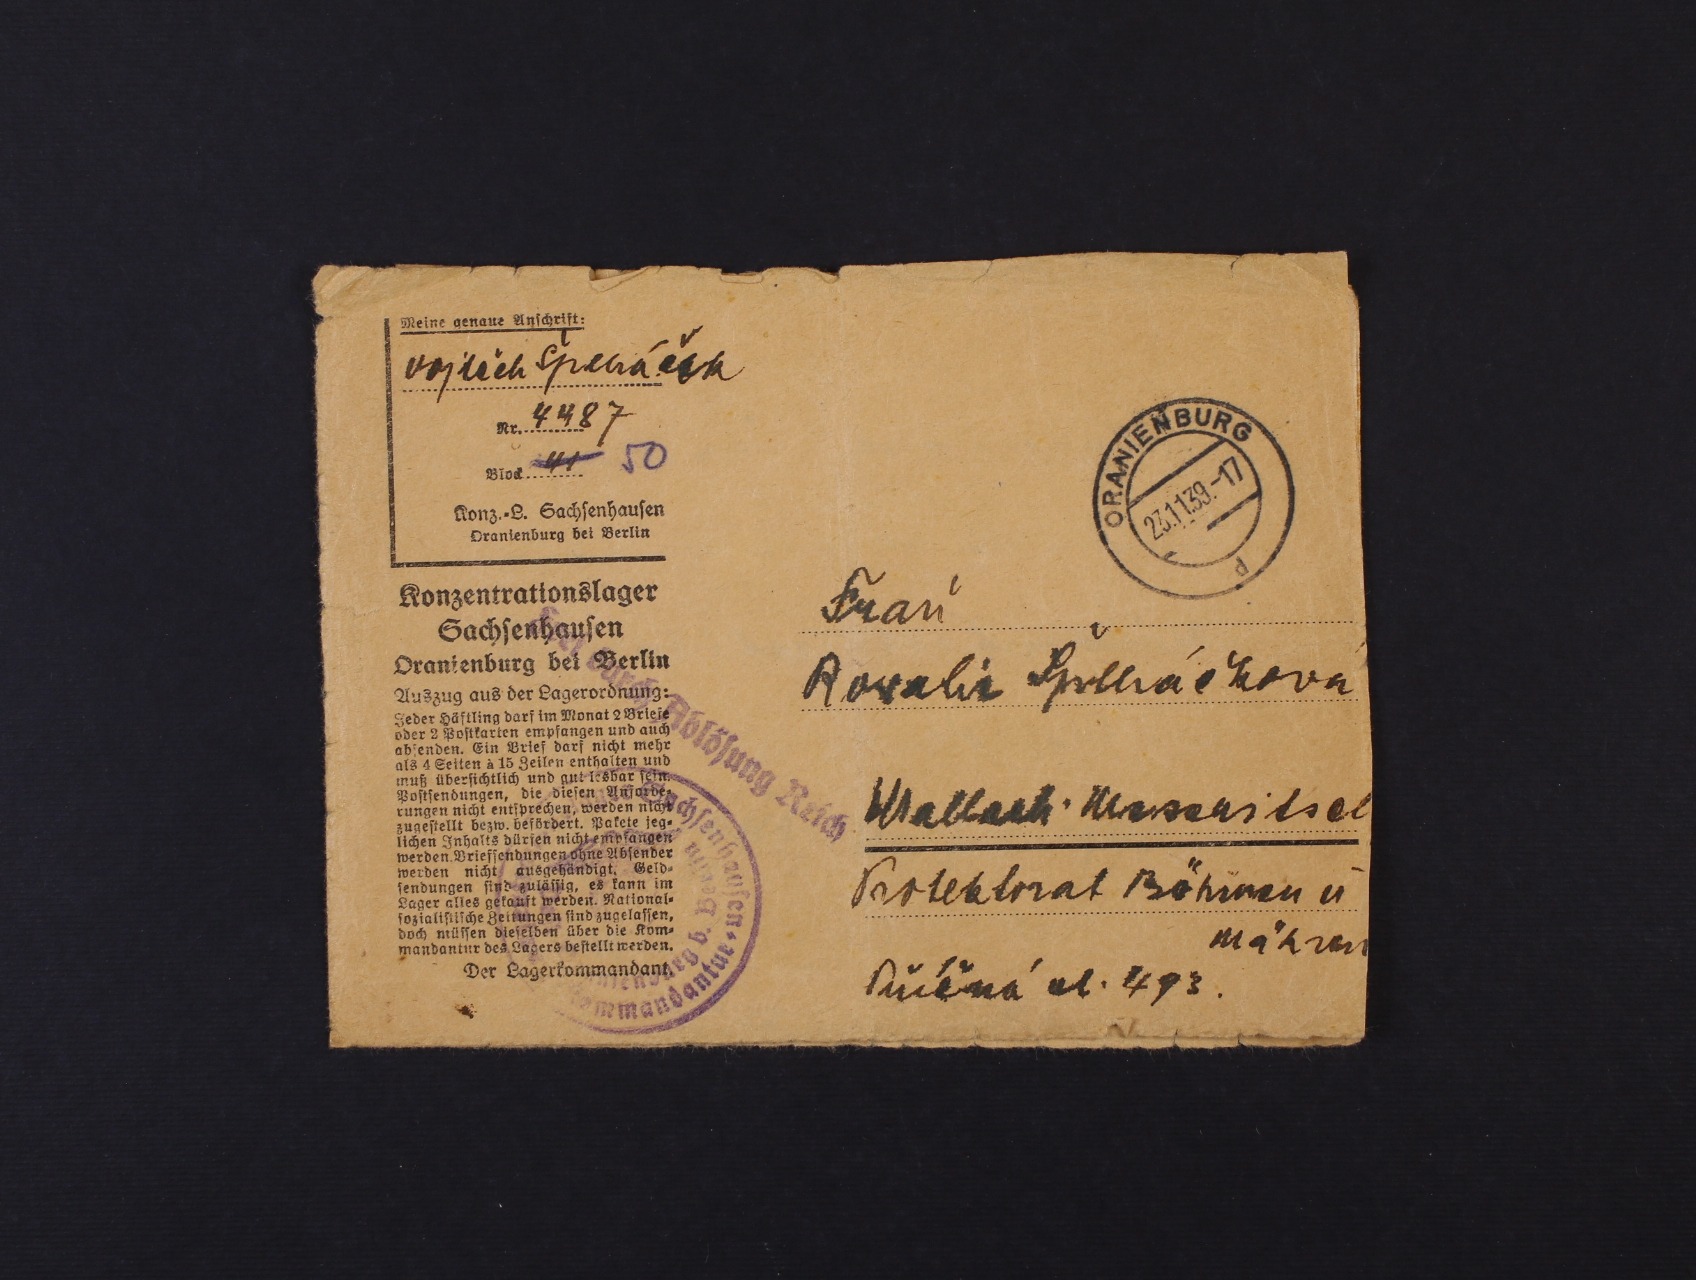 Meine genaue Anschrift:
Vojtěch
Nr. 4487
Block 41 50
Konz.-L. Sachsenhausen
Oranienburg bei Berlin
Konzentrationslager
Sachsenhausen
Oranienburg bei Berlin
Auszug aus der Lagerordnung:
Jeder Häftling darf im Monat 2 Briefe
oder 2 Postkarten empfangen und auch
absenden. Ein Brief darf nicht mehr
als 4 Seiten à 15 Zeilen enthalten und
muß übersichtlich und gut lesbar sein.
Postsendungen, die diesen Anforde-
rungen nicht entsprechen, werden nicht
zugestellt bezw. befördert. Pakete jeg-
lichen Inhalts dürfen nicht empfangen
werden. Briefsendungen ohne Absender
werden nicht ausgehändigt. Geld-
sendungen sind zulässig, es kann im
Lager alles gekauft werden. National-
sozialistische Zeitungen sind zugelassen,
doch müssen dieselben über die Kom-
mandantur des Lagers bestellt werden.
Der Lagerkommandant.
Frei durch Ablösung Reich
Sachsenhausen
Oranienburg b. Berlin
Kommandantur
ORANIENBURG
23.11.39.-17
p
Frau
Rozalie
Wallach. Messeritsch
Protektorat Böhmen u
Mähren
ul. 493.